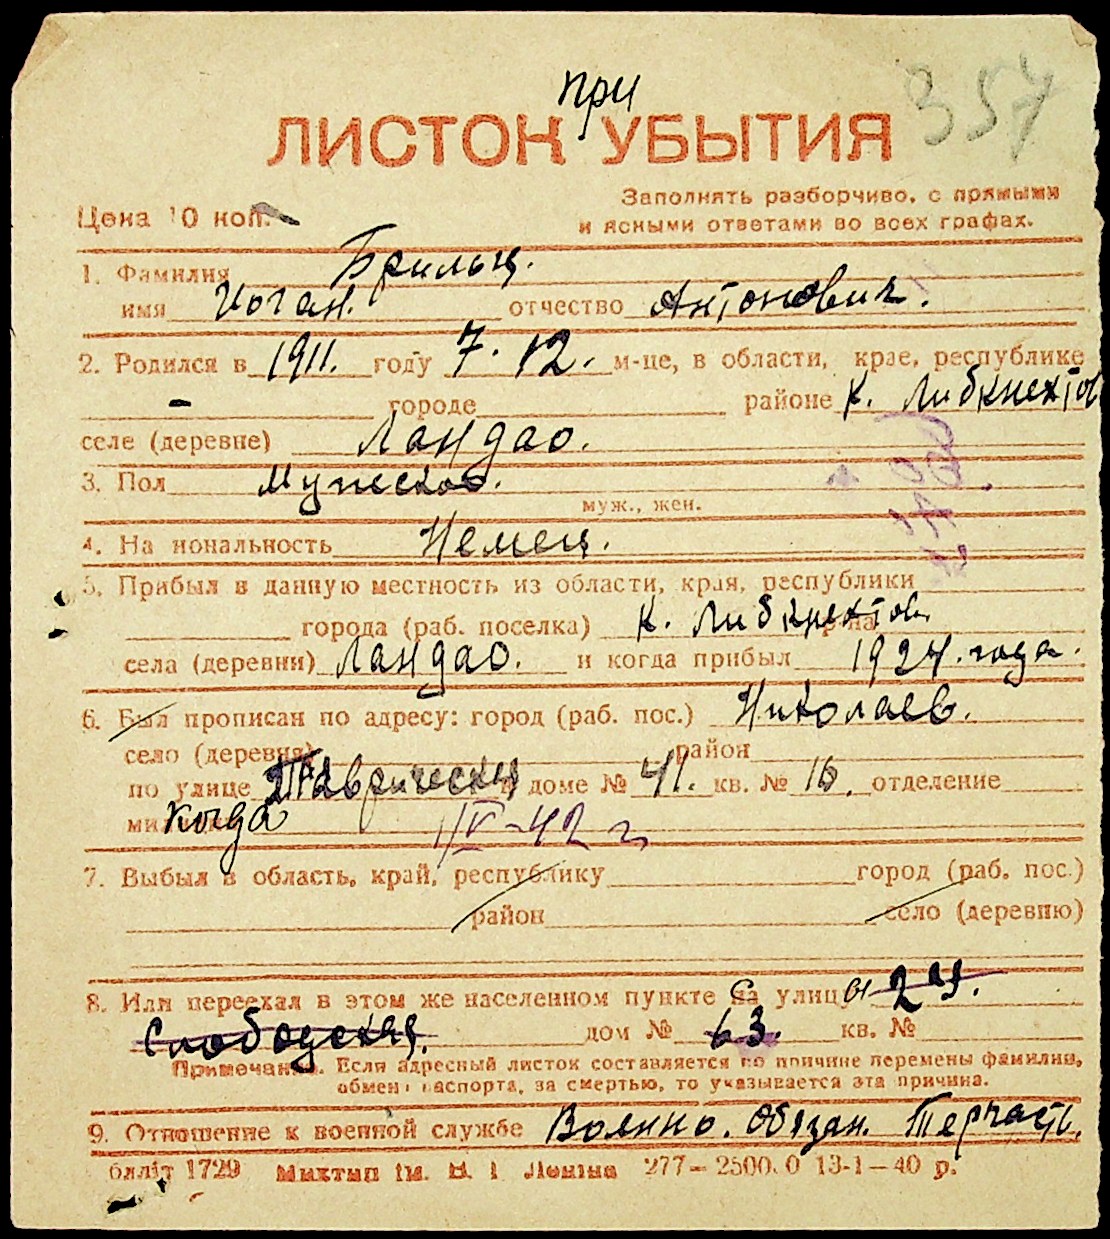 357
при
ЛИСТОК УБЫТИЯ
Заполнять разборчиво, с прямыми
и ясными ответами во всех графах.
Цена 10 коп.
1. Фамилия Брильц.
имя Иоган. отчество Антонович.
2. Родился в 1911. году 7. 12. м-це, в области, крае, республике
- городе районе К. Либкнехтов
селе (деревне) Ландао.
3. Пол Мужской.
муж., жен.
4. На иональность Немец.
5. Прибыл в данную местность из области, края, республики
города (раб. поселка) К. Либкнехтов р-на
села (деревни) Ландао. и когда прибыл 1924. года.
6. Был прописан по адресу: город (раб. пос.) Николаев.
село (деревня) район
по улице Таврическая в доме № 41. кв. № 16. отделение
когда 1/IV-42 г.
7. Выбыл в область, край, республику город (раб. пос.)
район село (деревню)
8. Или переехал в этом же населенном пункте на улицы 2
Слободская. дом № 63. кв. №
Примечание. Если адресный листок составляется по причине перемены фамилии,
обмен паспорта, за смертью, то указывается эта причина.
9. Отношение к военной службе Военно. Обязан. Терчасть.
білліт 1729 Миктип ім. В. І Леніна 277-2500.0 13-1-40 р.